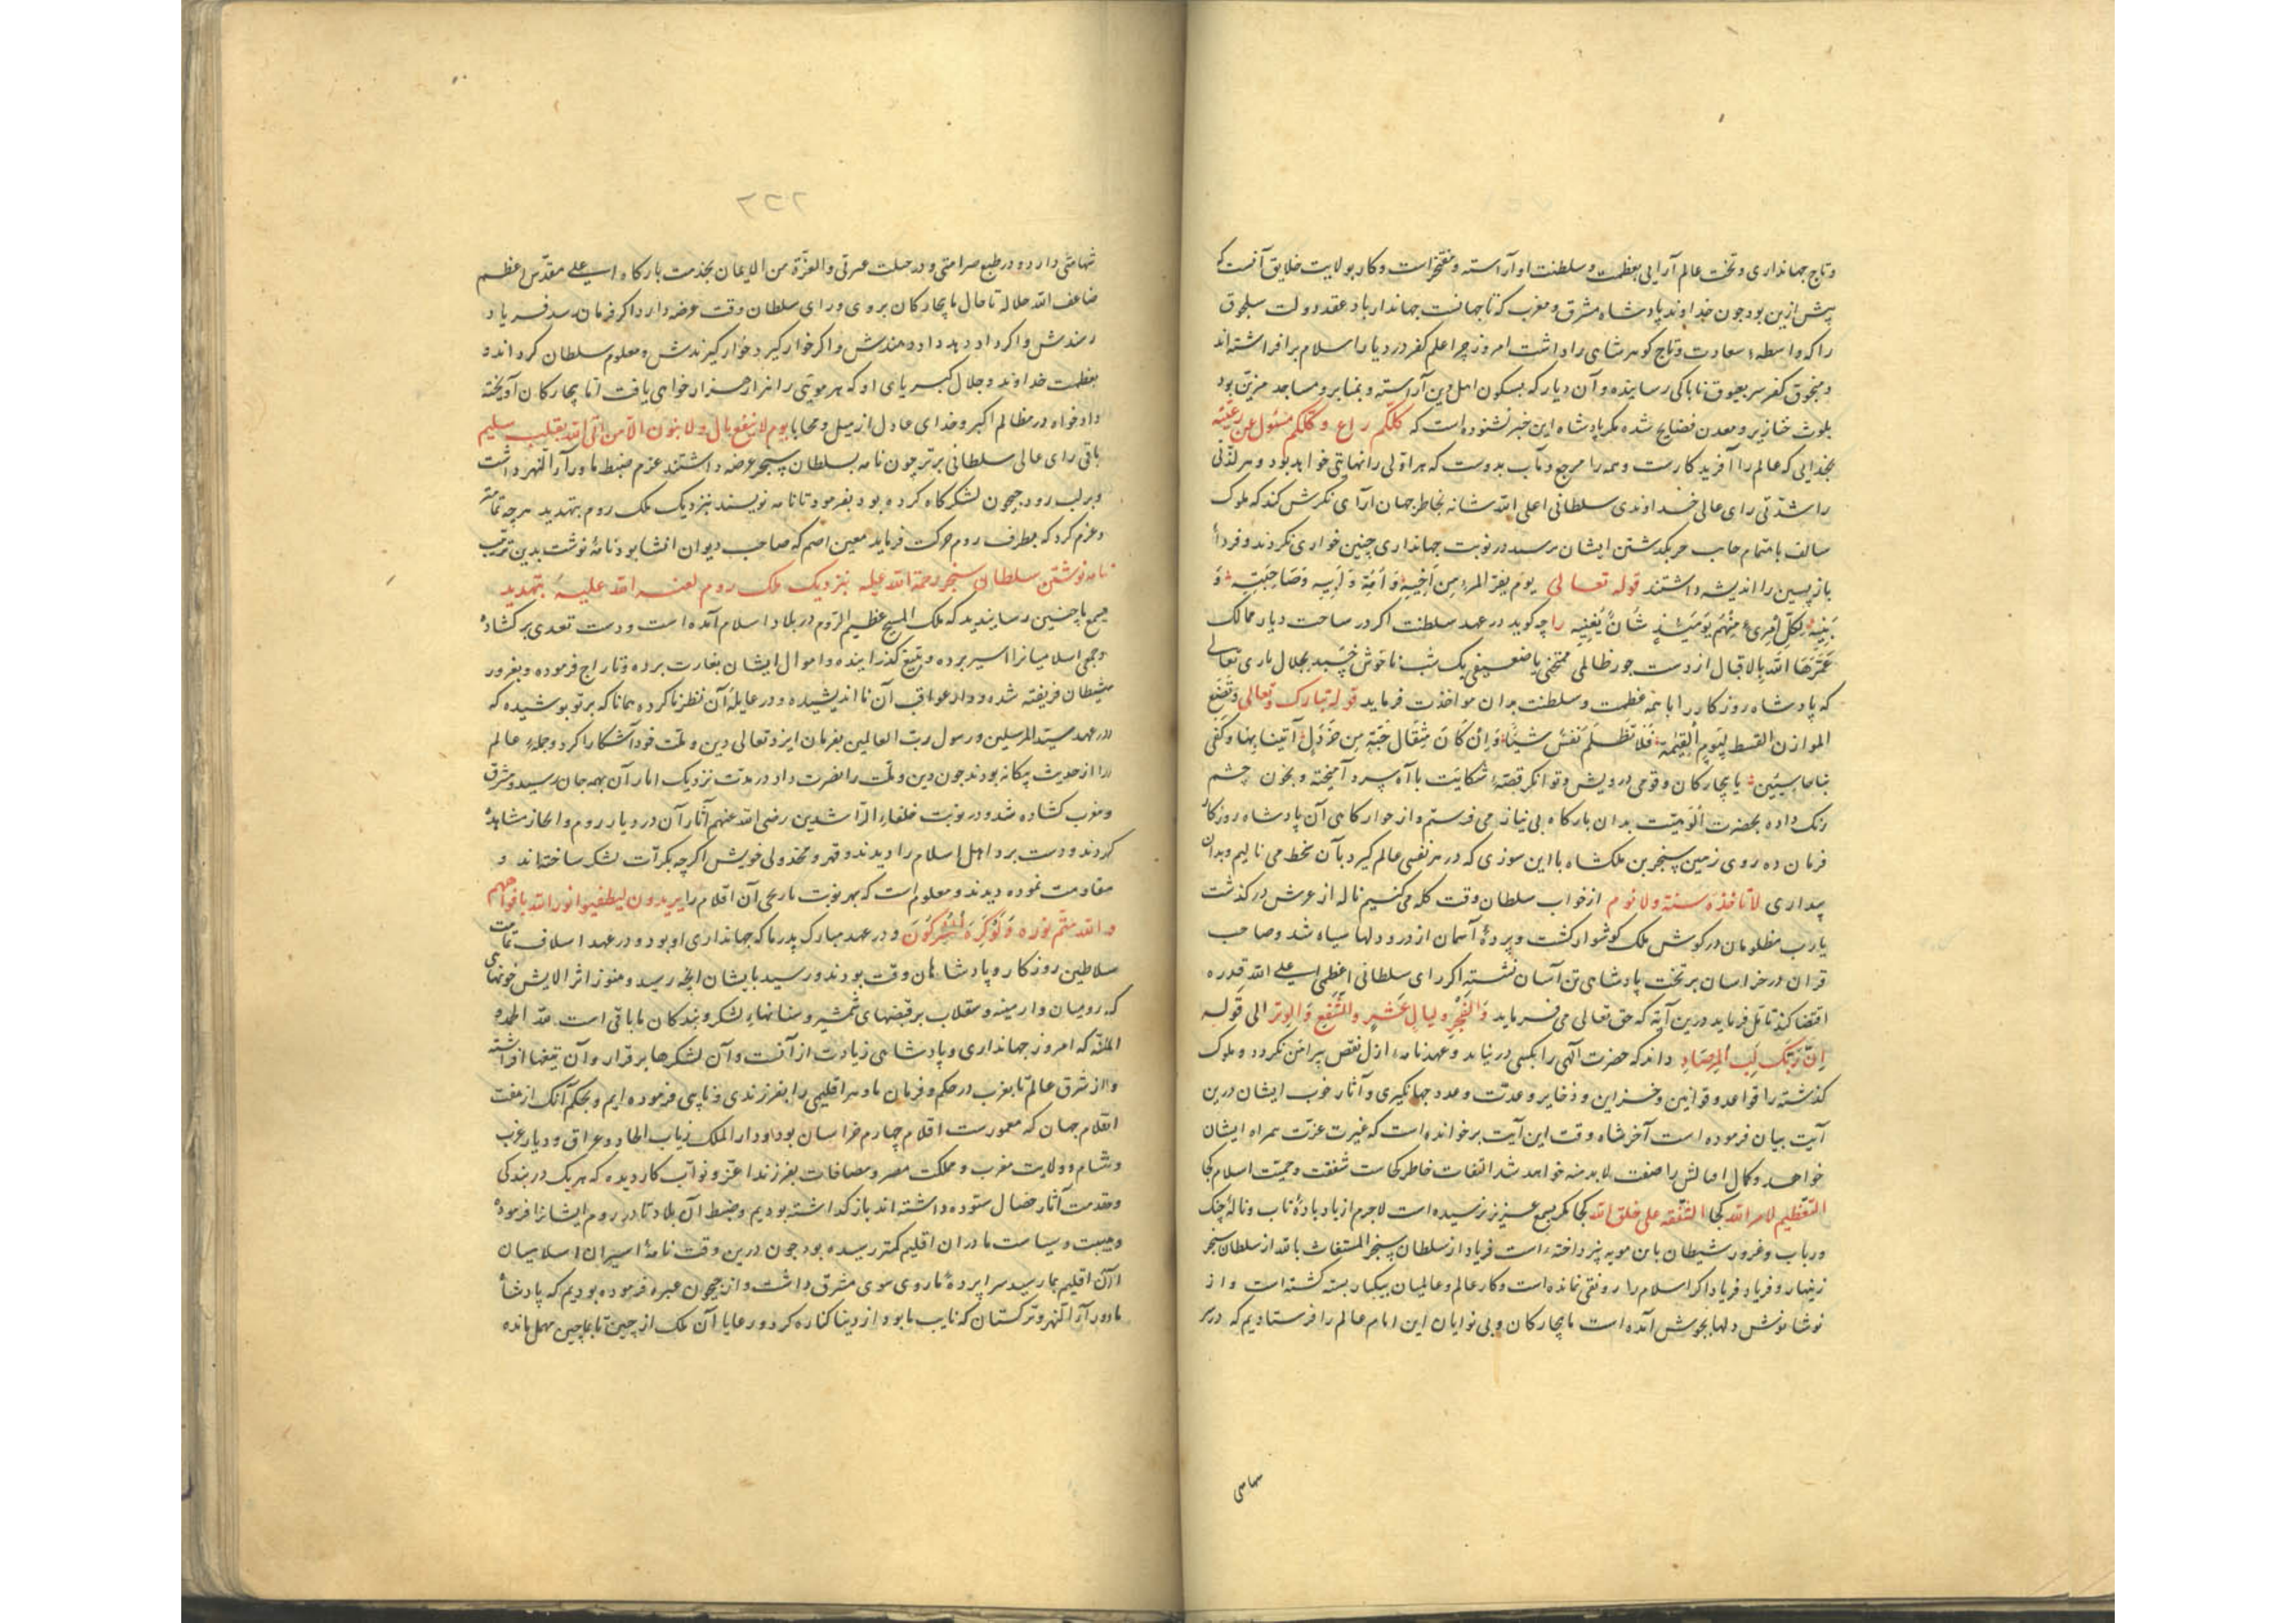 وتاج جهانداری وتخت عالم آرایی بعظمت وسلطنت او آراسته ومفتخر است وکار بولایت خلایق آنست که
پیش ازین بود جون خداوند پادشاه مشرق ومغرب که تا جهانست جهاندار باد عقد دولت سلجوق
را که واسطهٔ سعادت وتاج کوهر شاهی را داشت امروز چرا علم کفر در دیار اسلام برافراشته اند
ومنجوق کفر سر بعیوق ناباکی رسانیده وآن دیار که بسکون اهل دین آراسته وبمنابر ومساجد مزین بود
بلوث خنازیر ومعدن فضایح شده مکر پادشاه این خبر نشنوده است که کلکم راع وکلکم مسئول عن رعیته
بخدایی که عالم را آفریدکارست وهمه را مرجع ومآب بدوست که هر اولی را نهایتی خواهد بود وهر لذتی
را شدتی رای عالی خداوندی سلطانی اعلی الله شانه بخاطر جهان آرای نکرش کند که ملوک
سالف با تمام جانب حر بکذشتن ایشان برسید در نوبت جهانداری چنین خواری نکردند وفردا
باز پسین را اندیشه داشتند قوله تعالی یوم یفر المرء من اخیه وامه وابیه وصاحبته و
بنیه لکل امرئ منهم یومئذ شان یغنیه را چه کوید در عهد سلطنت اکر در ساحت دیار ممالک
عمرها الله بالاقبال از دست جور ظالمی ممتحنی یا ضعیفی یک شب ناخوش خسبد بجلال باری تعالی
که پادشاه روزکار را با همه عظمت وسلطنت بدان مواخذت فرماید قوله تبارک وتعالی ونضع
الموازین القسط لیوم القیمة فلا تظلم نفس شیئا وان کان مثقال حبة من خردل آتینا بها وکفی
بنا حاسبین یا بیچارکان وقومی درویش وتوانکر قصهٔ شکایت با آه سرد آمیخته وبخون چشم
رنک داده بحضرت الوهیت بدان بارکاه بی نیاز می فرستم واز خوارکاهی آن پادشاه روزکار
فرمان ده روی زمین سنجر بن ملکشاه با این سوزی که در هر نفسی عالم کیرد بآن نمط می نالیم وبدان
بیداری لا تاخذه سنة ولا نوم از خواب سلطان وقت کله می کنیم ناله از عرش درکذشت
یارب مظلومان در کوش ملک کوشوار کشت وپردهٔ آسمان از درد دلها سیاه شد وصاحب
قران در خراسان بر تخت پادشاهی تن آسان نشسته اکر رای سلطانی اعظمی اعلی الله قدره
اقتضا کند تامل فرماید درین آیه که حق تعالی می فرماید والفجر ولیال عشر والشفع والوتر الی قوله
ان ربک لبالمرصاد داند که حضرت الهی را بکسی در نیاید وعهدنامهٔ ازل نقص پیرامن نکردد وملوک
کذشته را قواعد وقوانین وخزاین وذخایر وعدت وعدد جهانکیری وآثار خوب ایشان درین
آیت بیان فرموده است آخر شاه وقت این آیت برخوانده است که غیرت عزت همراه ایشان
خواهد وکال امالش را صفت لابد منه خواهد شد التفات خاطر کجاست شفقت وحمیت اسلام کجا
التعظیم لامر الله کجا الشفقه علی خلق الله کجا مکر بسمع عزیز نرسیده است لاجرم از باد بادهٔ ناب ونالهٔ چنک
ورباب وغرور شیطان بابن مویه پنرداخته است فریاد از سلطان سنجر المستغاث بالله از سلطان سنجر
زینهار وفریاد فریاد اکر اسلام را رونقی نمانده است وکار عالم وعالمیان بیکبار بسته کشته است واز
نوشا نوش دلها بجوش آمده است ما بیچارکان وبی نوایان این امام عالم را فرستادیم که در سر
سهامی
۲۵۳
شهامتی دارد ودر طبع صرامتی ودر جبلت عسرتی والعزة من الایمان بخدمت بارکاه اعلی مقدس اعظم
ضاعف الله جلاله تا حال ما بیچارکان بر وی ورای سلطان وقت عرضه دارد اکر فرمان رسد فریاد
رسندش واکر داد دهد داد دهندش واکر خوار کیرد خوار کیرندش ومعلوم سلطان کرداند و
بعظمت خداوند وجلال کبریای او که هر موئی را هزار هزار خواهی یافت تا بیچارکان آویخته
دادخواه در مظالم اکبر وخدای عادل از میل ومحابا یوم لا ینفع مال ولا بنون الا من اتی الله بقلب سلیم
باقی رای عالی سلطانی برتر چون نامه بسلطان سنجر عرضه داشتند عزم ضبط ماورآء النهر داشت
وبر لب رود جیحون لشکرکاه کرده بود بفرمود تا نامه نویسند بنزدیک ملک روم بتهدید هرچه تمامتر
وعزم کرد که بطرف روم حرکت فرماید معین اصم که صاحب دیوان انشا بود نامهٔ نوشت بدین ترتیب
نامه نوشتن سلطان سنجر رحمة الله علیه بنزدیک ملک روم لعنه الله علیه بتهدید
بسمع ما چنین رسانیدند که ملک المسیح عظیم الروم در بلاد اسلام آمده است ودست تعدی برکشاده
وجمعی اسلامیانرا اسیر برده وبتیغ کذرانیده واموال ایشان بغارت برده وتاراج فرموده وبغرور
شیطان فریفته شده وداد عواقب آن نااندیشیده ودر غایلهٔ آن نظر ناکرده همانا که بر تو پوشیده که
در عهد سید المرسلین ورسول رب العالمین بفرمان ایزد تعالی دین وملت خود آشکارا کرد وجملهٔ عالم
را از حدیث بیکانه بودند جون دین وملت را نصرت داد در مدت نزدیک آثار آن بهمه جهان رسید ومشرق
ومغرب کشاده شد ودر نوبت خلفاء الراشدین رضی الله عنهم آثار آن در دیار روم وانحاز مشاهده
کردند ودست برد اهل اسلام را دیدند وقهر ومخذولی خویش اکرچه بکرات لشکر ساخته اند و
مقاومت نموده دیدند ومعلوم است که بهر نوبت تاریخی آن اقلام را یریدون لیطفئوا نور الله بافواههم
والله متم نوره ولو کره المشرکون ودر عهد مبارک پدر ما که جهانداری او بود ودر عهد اسلاف ما
سلاطین روزکار وپادشاهان وقت بودند ورسید بایشان آنچه رسید وهنوز اثر الایش خونهای
که رومیان وارمنیه وسقلاب بر قبضهای شمشیر وسنانهای لشکر وبندکان ما باقی است لله الحمد و
المنه که امروز جهانداری وپادشاهی زیادت از آنست وآن لشکرها برقرار وآن تیغها افراشته
واز شرق عالم تا بغرب در حکم وفرمان ما وهر اقلیمی را بفرزندی ونایبی فرموده ایم وبحکم آنک از هفت
اقلام جهان که معمورست اقلام چهارم خراسان بود ودار الملک زیاب الحاد وعراق ودیار عرب
وشام وولایت مغرب ومملکت مصر ومضافات بفرزند اعز ونواب کاردیده که هریک در بندکی
ومقدمت آثار خصال ستوده داشته اند باز کذاشته بودیم وضبط آن بلاد تا در روم ایشانرا فرموده
وهیبت وسیاست ما دران اقلیم کمتر رسیده بود جون درین وقت نامهٔ اسیران اسلامیان
از آن اقلیم بما رسید سراپردهٔ ما روی سوی مشرق داشت واز جیحون عبره فرموده بودیم که پادشاه
ماورآء النهر وترکستان که نایب ما بود از دنیا کناره کرد ورعایا آن ملک از چین تا بماچین مهمل مانده